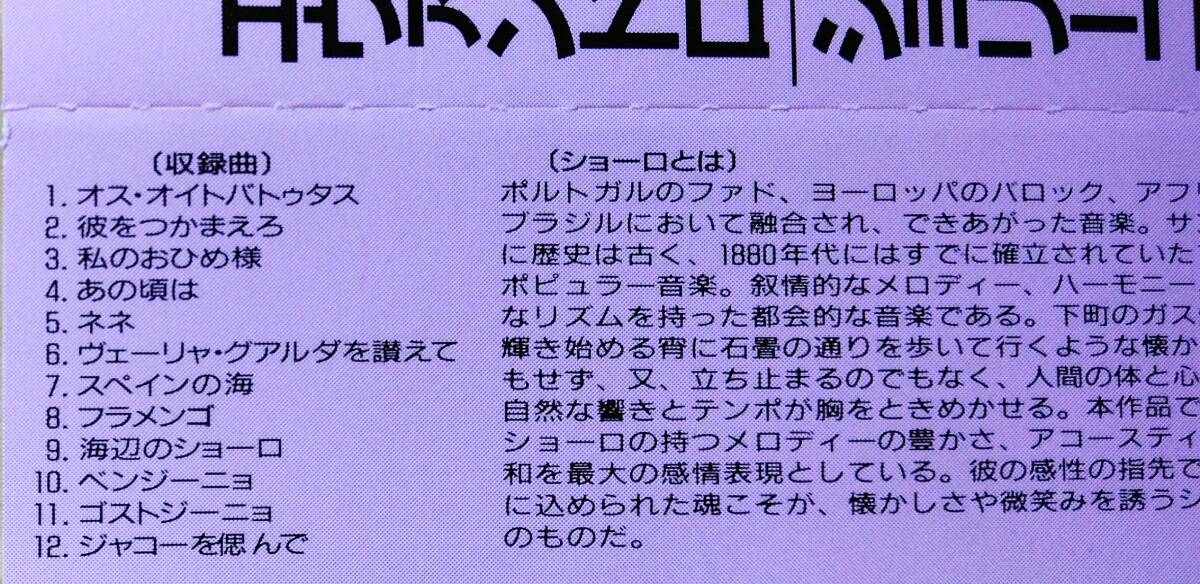 エヴァンドロ/ショーリー
〔収録曲〕
1. オス・オイトバトゥタス
2. 彼をつかまえろ
3. 私のおひめ様
4. あの頃は
5. ネネ
6. ヴェーリャ・グアルダを讃えて
7. スペインの海
8. フラメンゴ
9. 海辺のショーロ
10. ベンジーニョ
11. ゴストジーニョ
12. ジャコーを偲んで
〔ショーロとは〕
ポルトガルのファド、ヨーロッパのバロック、アフ
ブラジルにおいて融合され、できあがった音楽。サ
に歴史は古く、1880年代にはすでに確立されていた
ポピュラー音楽。叙情的なメロディー、ハーモニー
なリズムを持った都会的な音楽である。下町のガス
輝き始める宵に石畳の通りを歩いて行くような懐か
もせず、又、立ち止まるのでもなく、人間の体と心
自然な響きとテンポが胸をときめかせる。本作品で
ショーロの持つメロディーの豊かさ、アコースティ
和を最大の感情表現としている。彼の感性の指先で
に込められた魂こそが、懐かしさや微笑みを誘うシ
のものだ。